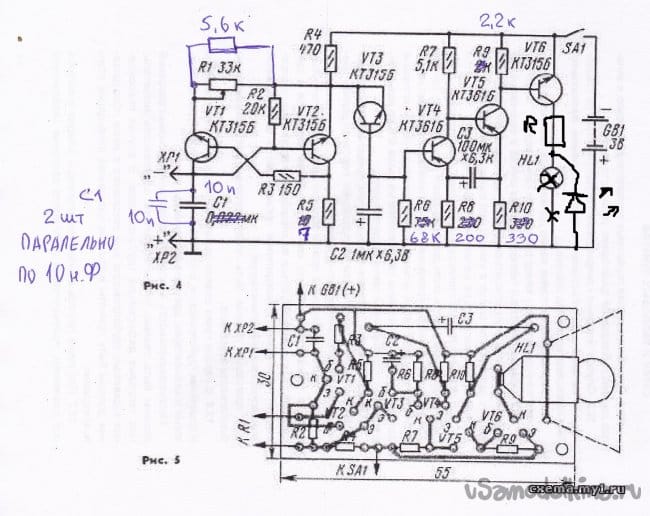 5,6к
2,2к
R1 33к
R2
20к
R4
470
VT1
КТ315Б
VT2
КТ315Б
VT3
КТ315Б
R7
5,1к
R9
VT4
КТ361б
VT5
КТ361б
VT6
КТ315Б
SA1
C3
100мк
×6,3к
R
HL1
GB1
3В
XP1
"–"
R3 150
10n
C1
2 шт
ПАРАЛЕЛЬНО
ПО 10 н.Ф
10n
C1
0,022мк
R5
7
R6
68К
R8
200
R10
330
"+"
XP2
C2 1мк×6,3В
Рис. 4
К GB1(+)
К XP2
К XP1
C1
R3
C2
C3
HL1
30
R5
R6
R8
R10
VT1
VT2
VT3
VT4
VT5
VT6
к
б
э
К R1
R2
R4
R7
R9
К SA1
55
Рис. 5
cxema.my1.ru
vSamodelkina.ru